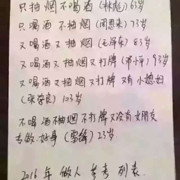 只抽烟不喝酒（林彪）63岁
只喝酒不抽烟（周恩来）73岁
又喝酒又抽烟（毛泽东）83岁
又喝酒又抽烟又打牌（邓小平）93岁
又喝酒又抽烟又打牌又有小媳妇
（张学良）103岁
不喝酒不抽烟不打牌又没有女朋友
（雷锋）23岁
2016年做人参考列表